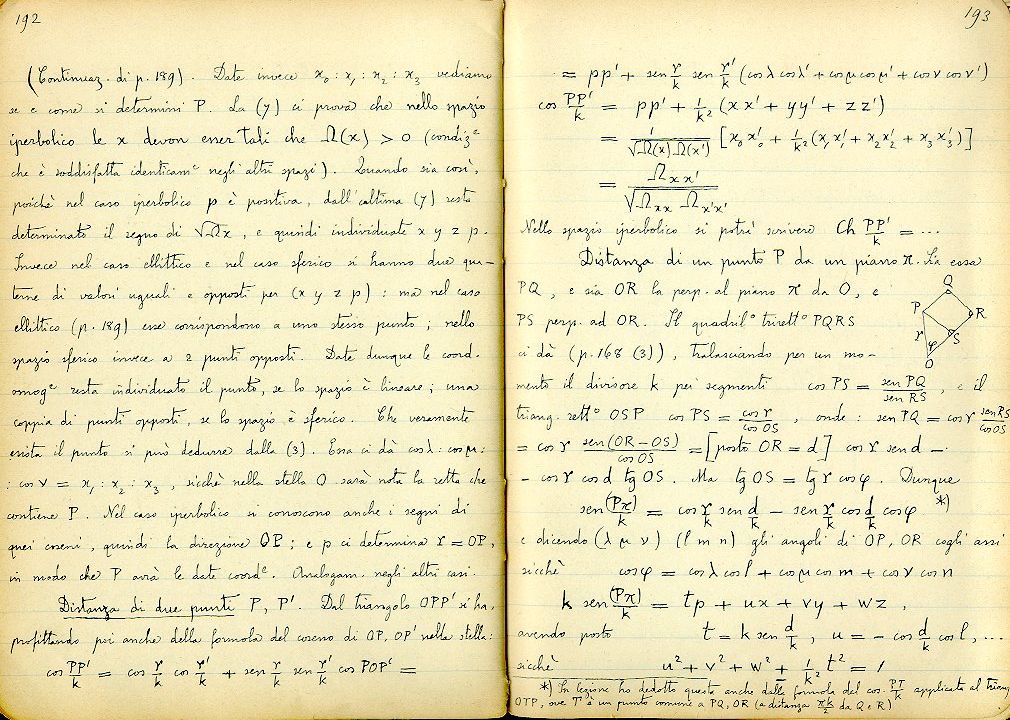 192
(Continuaz. di p. 189). Date invece x₀ : x₁ : x₂ : x₃ vediamo
se e come si determini P. La (7) ci prova che nello spazio
iperbolico le x devon esser tali che Ω(x) > 0 (condizᵉ
che è soddisfatta identicamᵉ negli altri spazi). Quando sia così,
poichè nel caso iperbolico p è positiva, dall'ultima (7) resta
determinato il segno di √Ωx, e quindi individuate x y z p.
Invece nel caso ellittico e nel caso sferico si hanno due qua-
terne di valori uguali e opposti per (x y z p) : ma nel caso
ellittico (p. 189) esse corrispondono a uno stesso punto ; nello
spazio sferico invece a 2 punti opposti. Date dunque le coord.
omogᵉ resta individuato il punto, se lo spazio è lineare ; una
coppia di punti opposti, se lo spazio è sferico. Che veramente
esista il punto si può dedurre dalla (3). Essa ci dà cos λ : cos μ :
: cos ν = x₁ : x₂ : x₃ , sicchè nella stella O sarà nota la retta che
contiene P. Nel caso iperbolico si conoscono anche i segni di
quei coseni, quindi la direzione OP ; e p ci determina r = OP,
in modo che P avrà le date coordᵉ. Analogam. negli altri casi.
Distanza di due punti P, P'. Dal triangolo OPP' si ha,
profittando poi anche della formola del coseno di OP, OP' nella stella :
cos PP'/k = cos r/k cos r'/k + sen r/k sen r'/k cos POP' =
193
= pp' + sen r/k sen r'/k (cos λ cos λ' + cos μ cos μ' + cos ν cos ν')
cos PP'/k = pp' + 1/k² (xx' + yy' + zz')
= 1/√Ω(x) Ω(x') [x₀x'₀ + 1/k² (x₁x'₁ + x₂x'₂ + x₃x'₃)]
= Ωxx' / √Ωxx Ωx'x'
Nello spazio iperbolico si potrà scrivere Ch PP'/k = ...
Distanza di un punto P da un piano π. Sia essa
PQ, e sia OR la perp. al piano π da O, e
PS perp. ad OR. Il quadrilº trirettº PQRS
ci dà (p. 168 (3)), tralasciando per un mo-
Q
P
R
S
r
φ
O
mento il divisore k pei segmenti cos PS = sen PQ / sen RS , e il
triang. rettº OSP cos PS = cos r / cos OS , onde : sen PQ = cos r sen RS / cos OS
= cos r sen(OR – OS) / cos OS = [posto OR = d] cos r sen d –
– cos r cos d tg OS. Ma tg OS = tg r cos φ. Dunque
sen (Pπ)/k = cos r/k sen d/k – sen r/k cos d/k cos φ *)
e dicendo (λ μ ν) (l m n) gli angoli di OP, OR cogli assi
sicchè cos φ = cos λ cos l + cos μ cos m + cos ν cos n
k sen (Pπ)/k = tp + ux + vy + wz ,
avendo posto t = k sen d/k , u = – cos d/k cos l, ...
sicchè u² + v² + w² + 1/k² t² = 1
*) In lezione ho dedotto questa anche dalla formola del cos. PT/k applicata al triang
OTP, ove T è un punto comune a PQ, OR (a distanza πk/2 da Q e R)